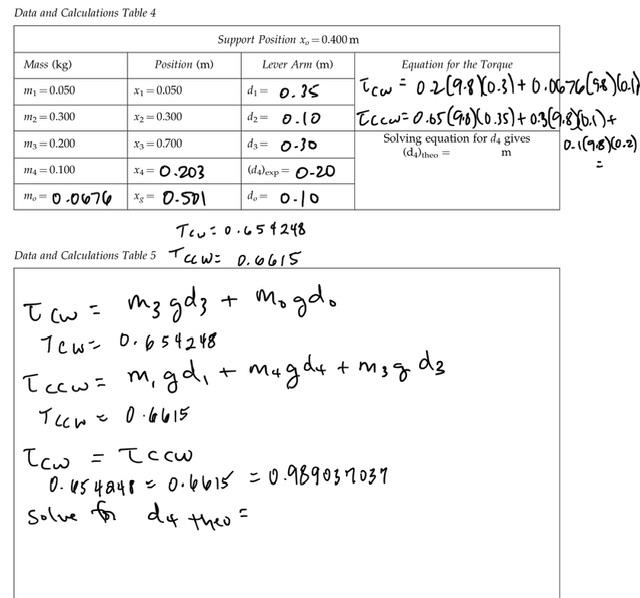 Data and Calculations Table 4
Support Position xₒ = 0.400 m
Mass (kg) Position (m) Lever Arm (m) Equation for the Torque
m₁ = 0.050 x₁ = 0.050 d₁ = 0.35 τcw = 0.2(9.8)(0.3) + 0.0676(9.8)(0.1)
m₂ = 0.300 x₂ = 0.300 d₂ = 0.10 τccw = 0.05(9.8)(0.35) + 0.3(9.8)(0.1) +
m₃ = 0.200 x₃ = 0.700 d₃ = 0.30 Solving equation for d₄ gives 0.1(9.8)(0.2)
(d₄)theo = m =
m₄ = 0.100 x₄ = 0.203 (d₄)exp = 0.20
mₒ = 0.0676 xg = 0.501 dₒ = 0.10
τcw = 0.654248
Data and Calculations Table 5 τccw = 0.6615
τcw = m₃gd₃ + m₀gd₀
τcw = 0.654248
τccw = m₁gd₁ + m₄gd₄ + m₃gd₃
τccw = 0.6615
τcw = τccw
0.654248 = 0.6615 = 0.989037037
Solve for d₄ theo =